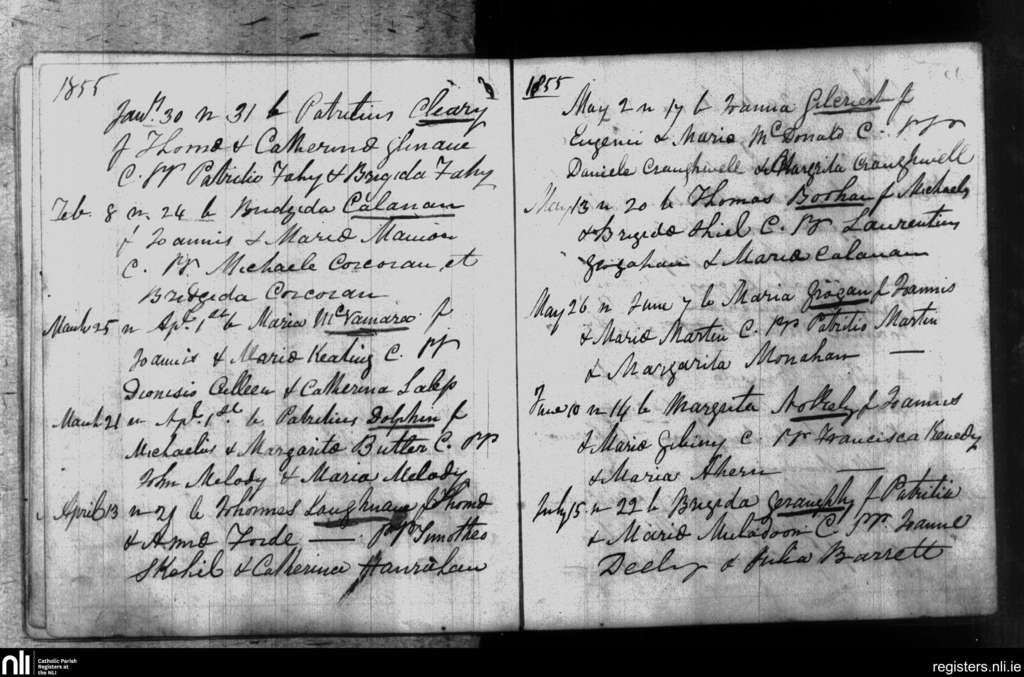 1855
Jany. 30 n 31 b Patritius Cleary
f Thomæ & Catherinæ Glinane
C. PP Patritio Fahy & Brigida Fahy
Feb. 8 n 24 b Bridgida Calanan
f Joannis & Mariæ Manion
C. PP Michaele Corcoran et
Bridgida Corcoran
March 25 n Apl. 1st b Maria McNamara f
Joannis & Mariæ Keating C. PP
Dionesio Culleen & Catherina
March 21 n Apl. 1st b Patritius Dolphin f
Michaelis & Margaritæ Butler C. PP
John Melody & Maria Melody
April 13 n 21 b Thommas Loughnane f Thomæ
& Annæ Forde — PP Timotheo
Skehil & Catherina Hanrahan
1855
May 2 n 17 b Joanna Gilcriest f
Eugenii & Mariæ McDonald C. PP
Daniele Craughwell & Margrita Craughwell
May 13 n 20 b Thomas Bohan f Michaelis
& Brigidæ Shiel C. PP Laurentius
& Maria Calanan
May 26 n June 7 b Maria Grogan f Joannis
& Mariæ Martin C. PP Patritio Martin
& Margarita Monahan —
June 10 n 14 b Margrita f Joannis
& Mariæ C. PP Francisca Kenedy
& Maria Ahern —
July 15 n 22 b Brigida Geraughty f Patritii
& Mariæ Muldoon C. PP Joanne
Deely & Julia Barrett
nli
Catholic Parish
Registers at
the NLI
registers.nli.ie